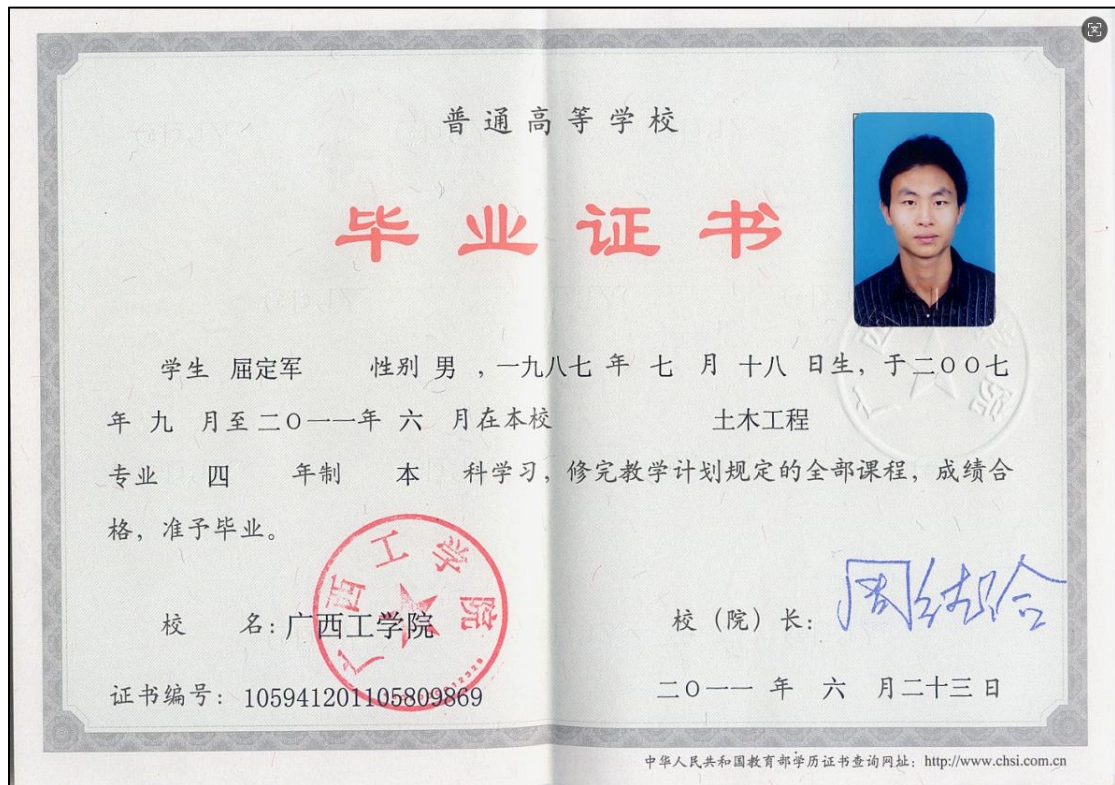 普通高等学校
毕业证书
学生 屈定军 性别 男 ，一九八七 年 七 月 十八 日生，于二〇〇七
年 九 月至二〇一一年 六 月在本校 土木工程
专业 四 年制 本 科学习，修完教学计划规定的全部课程，成绩合
格，准予毕业。
广西工学院
校 名：广西工学院
校（院）长：
证书编号：105941201105809869
二〇一一 年 六 月二十三日
中华人民共和国教育部学历证书查询网址：http://www.chsi.com.cn